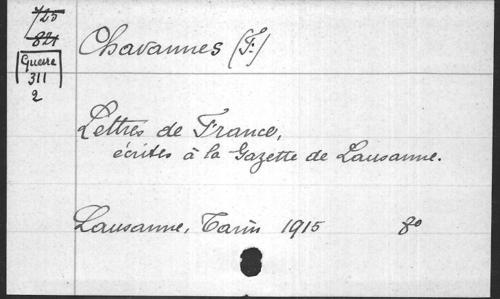 725
821
Guerre
311
2
Chavannes (F.)
Lettres de France,
écrites à la Gazette de Lausanne.
Lausanne, Tarin 1915 8°